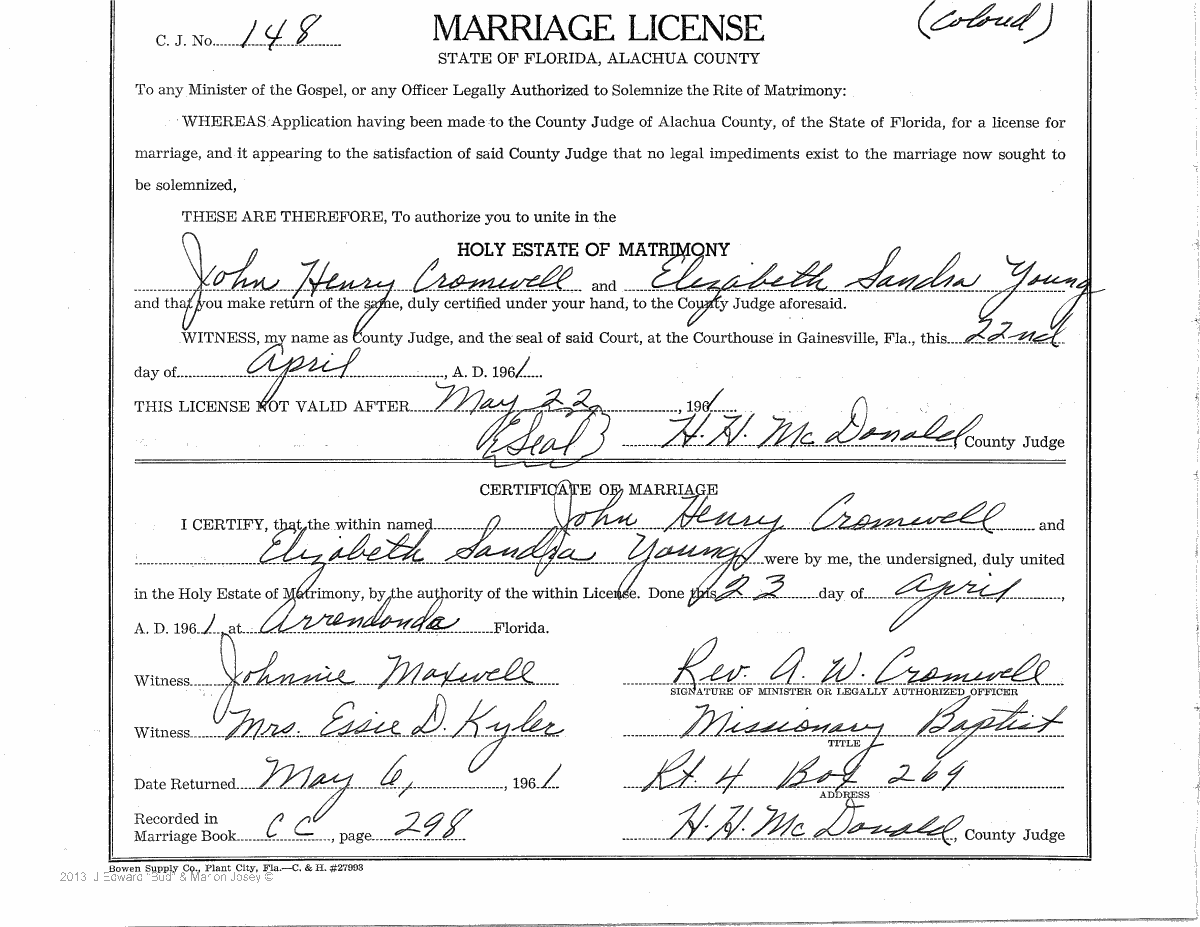 (Colored)
C. J. No. 148
MARRIAGE LICENSE
STATE OF FLORIDA, ALACHUA COUNTY
To any Minister of the Gospel, or any Officer Legally Authorized to Solemnize the Rite of Matrimony:
WHEREAS Application having been made to the County Judge of Alachua County, of the State of Florida, for a license for
marriage, and it appearing to the satisfaction of said County Judge that no legal impediments exist to the marriage now sought to
be solemnized,
THESE ARE THEREFORE, To authorize you to unite in the
HOLY ESTATE OF MATRIMONY
John Henry Cromwell and Elizabeth Sandra Young
and that you make return of the same, duly certified under your hand, to the County Judge aforesaid.
WITNESS, my name as County Judge, and the seal of said Court, at the Courthouse in Gainesville, Fla., this 22nd
day of April, A. D. 1961
THIS LICENSE NOT VALID AFTER May 22, 1961
(Seal) H. H. McDonald, County Judge
CERTIFICATE OF MARRIAGE
I CERTIFY, that the within named John Henry Cromwell and
Elizabeth Sandra Young were by me, the undersigned, duly united
in the Holy Estate of Matrimony, by the authority of the within License. Done this 23 day of April,
A. D. 1961, at Arrendonda Florida.
Witness Johnnie Maxwell Rev. A. W. Cromwell
SIGNATURE OF MINISTER OR LEGALLY AUTHORIZED OFFICER
Witness Mrs. Essie D. Kyler Missionary Baptist
TITLE
Date Returned May 6, 1961 Rt. 4 Box 269
ADDRESS
Recorded in
Marriage Book CC, page 298 H. H. McDonald, County Judge
Bowen Supply Co., Plant City, Fla.—C. & H. #27993
2013 J Edward "Bud" & Marion Josey ©